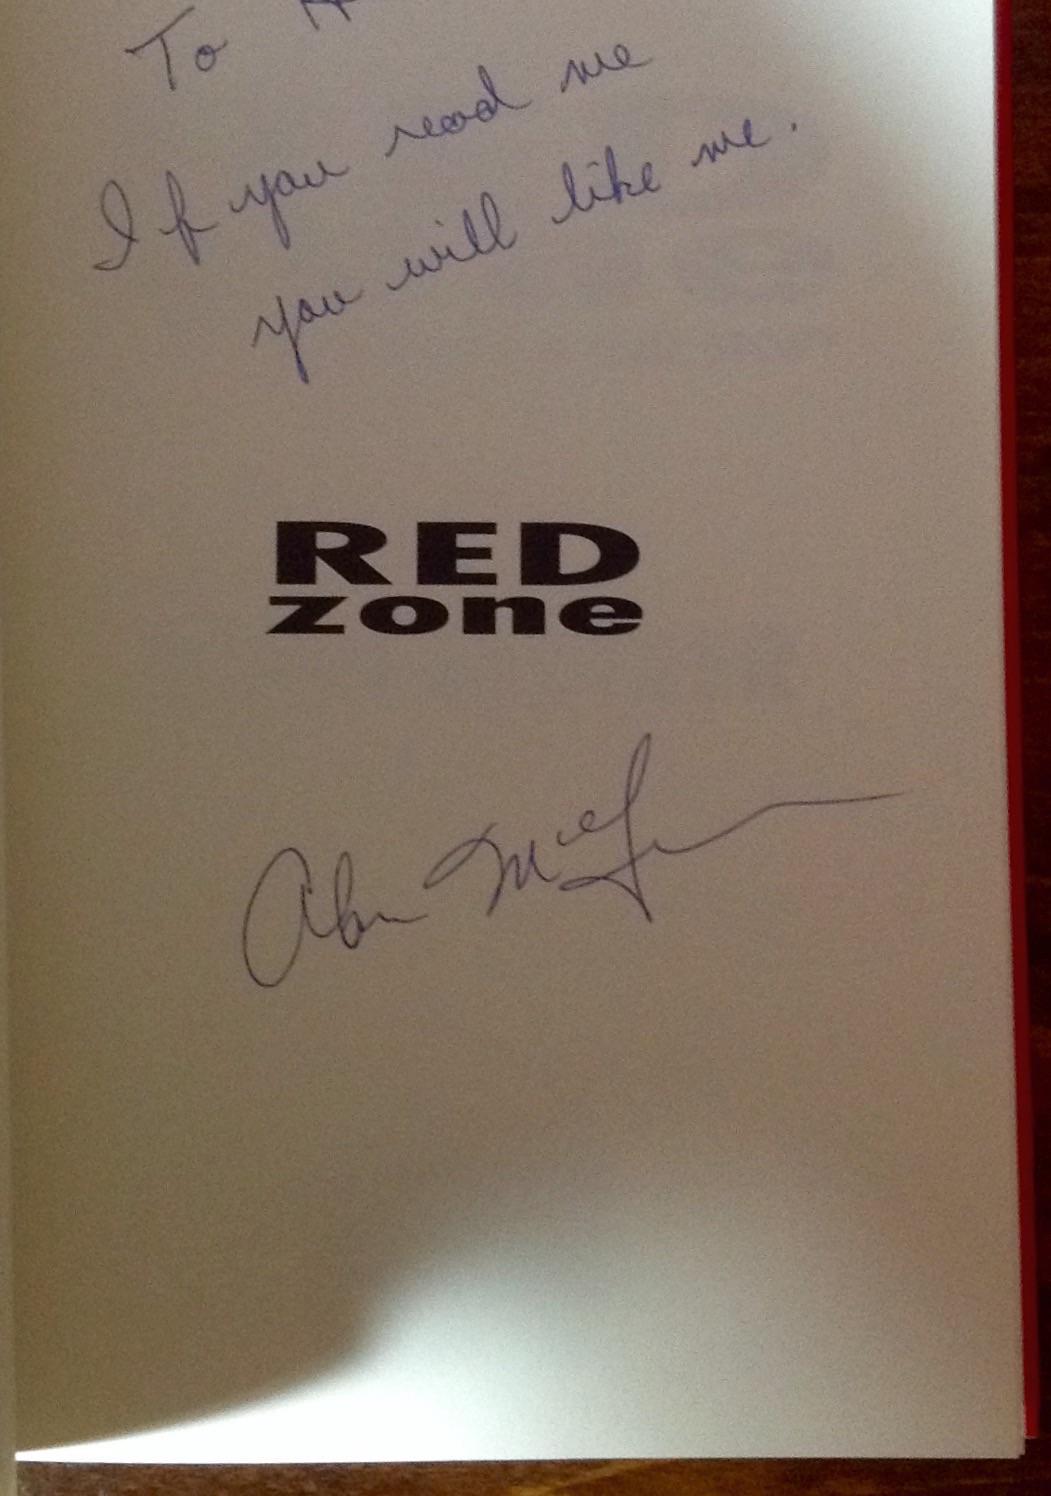 To
If you read me
you will like me.
RED
zone
Alan